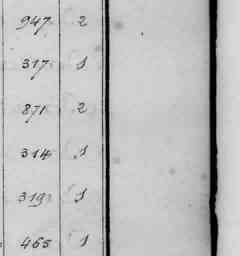 947 2
317 1
871 2
314 1
319 1
465 1